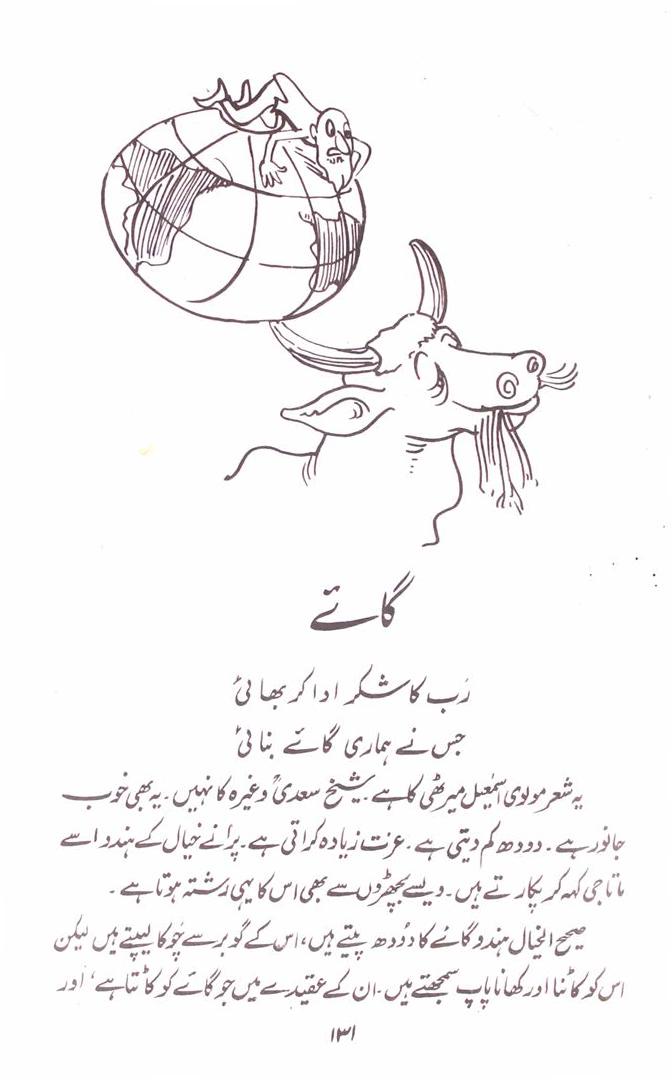 گائے
رَب کا شکر ادا کر بھائی
جس نے ہماری گائے بنائی
یہ شعر مولوی اسمٰعیل میرٹھی کا ہے۔ شیخ سعدیؒ وغیرہ کا نہیں۔ یہ بھی خوب
جانور ہے۔ دودھ کم دیتی ہے۔ عزت زیادہ کراتی ہے۔ پرانے خیال کے ہندو اسے
ماتا جی کہہ کر پکارتے ہیں۔ ویسے بچھڑوں سے بھی اس کا یہی رشتہ ہوتا ہے۔
صحیح الخیال ہندو گائے کا دُودھ پیتے ہیں، اس کے گوبر سے چَوکا لیپتے ہیں لیکن
اس کو کاٹنا اور کھانا پاپ سمجھتے ہیں۔ ان کے عقیدے میں جو گائے کو کاٹتا ہے، اور
۱۳۱